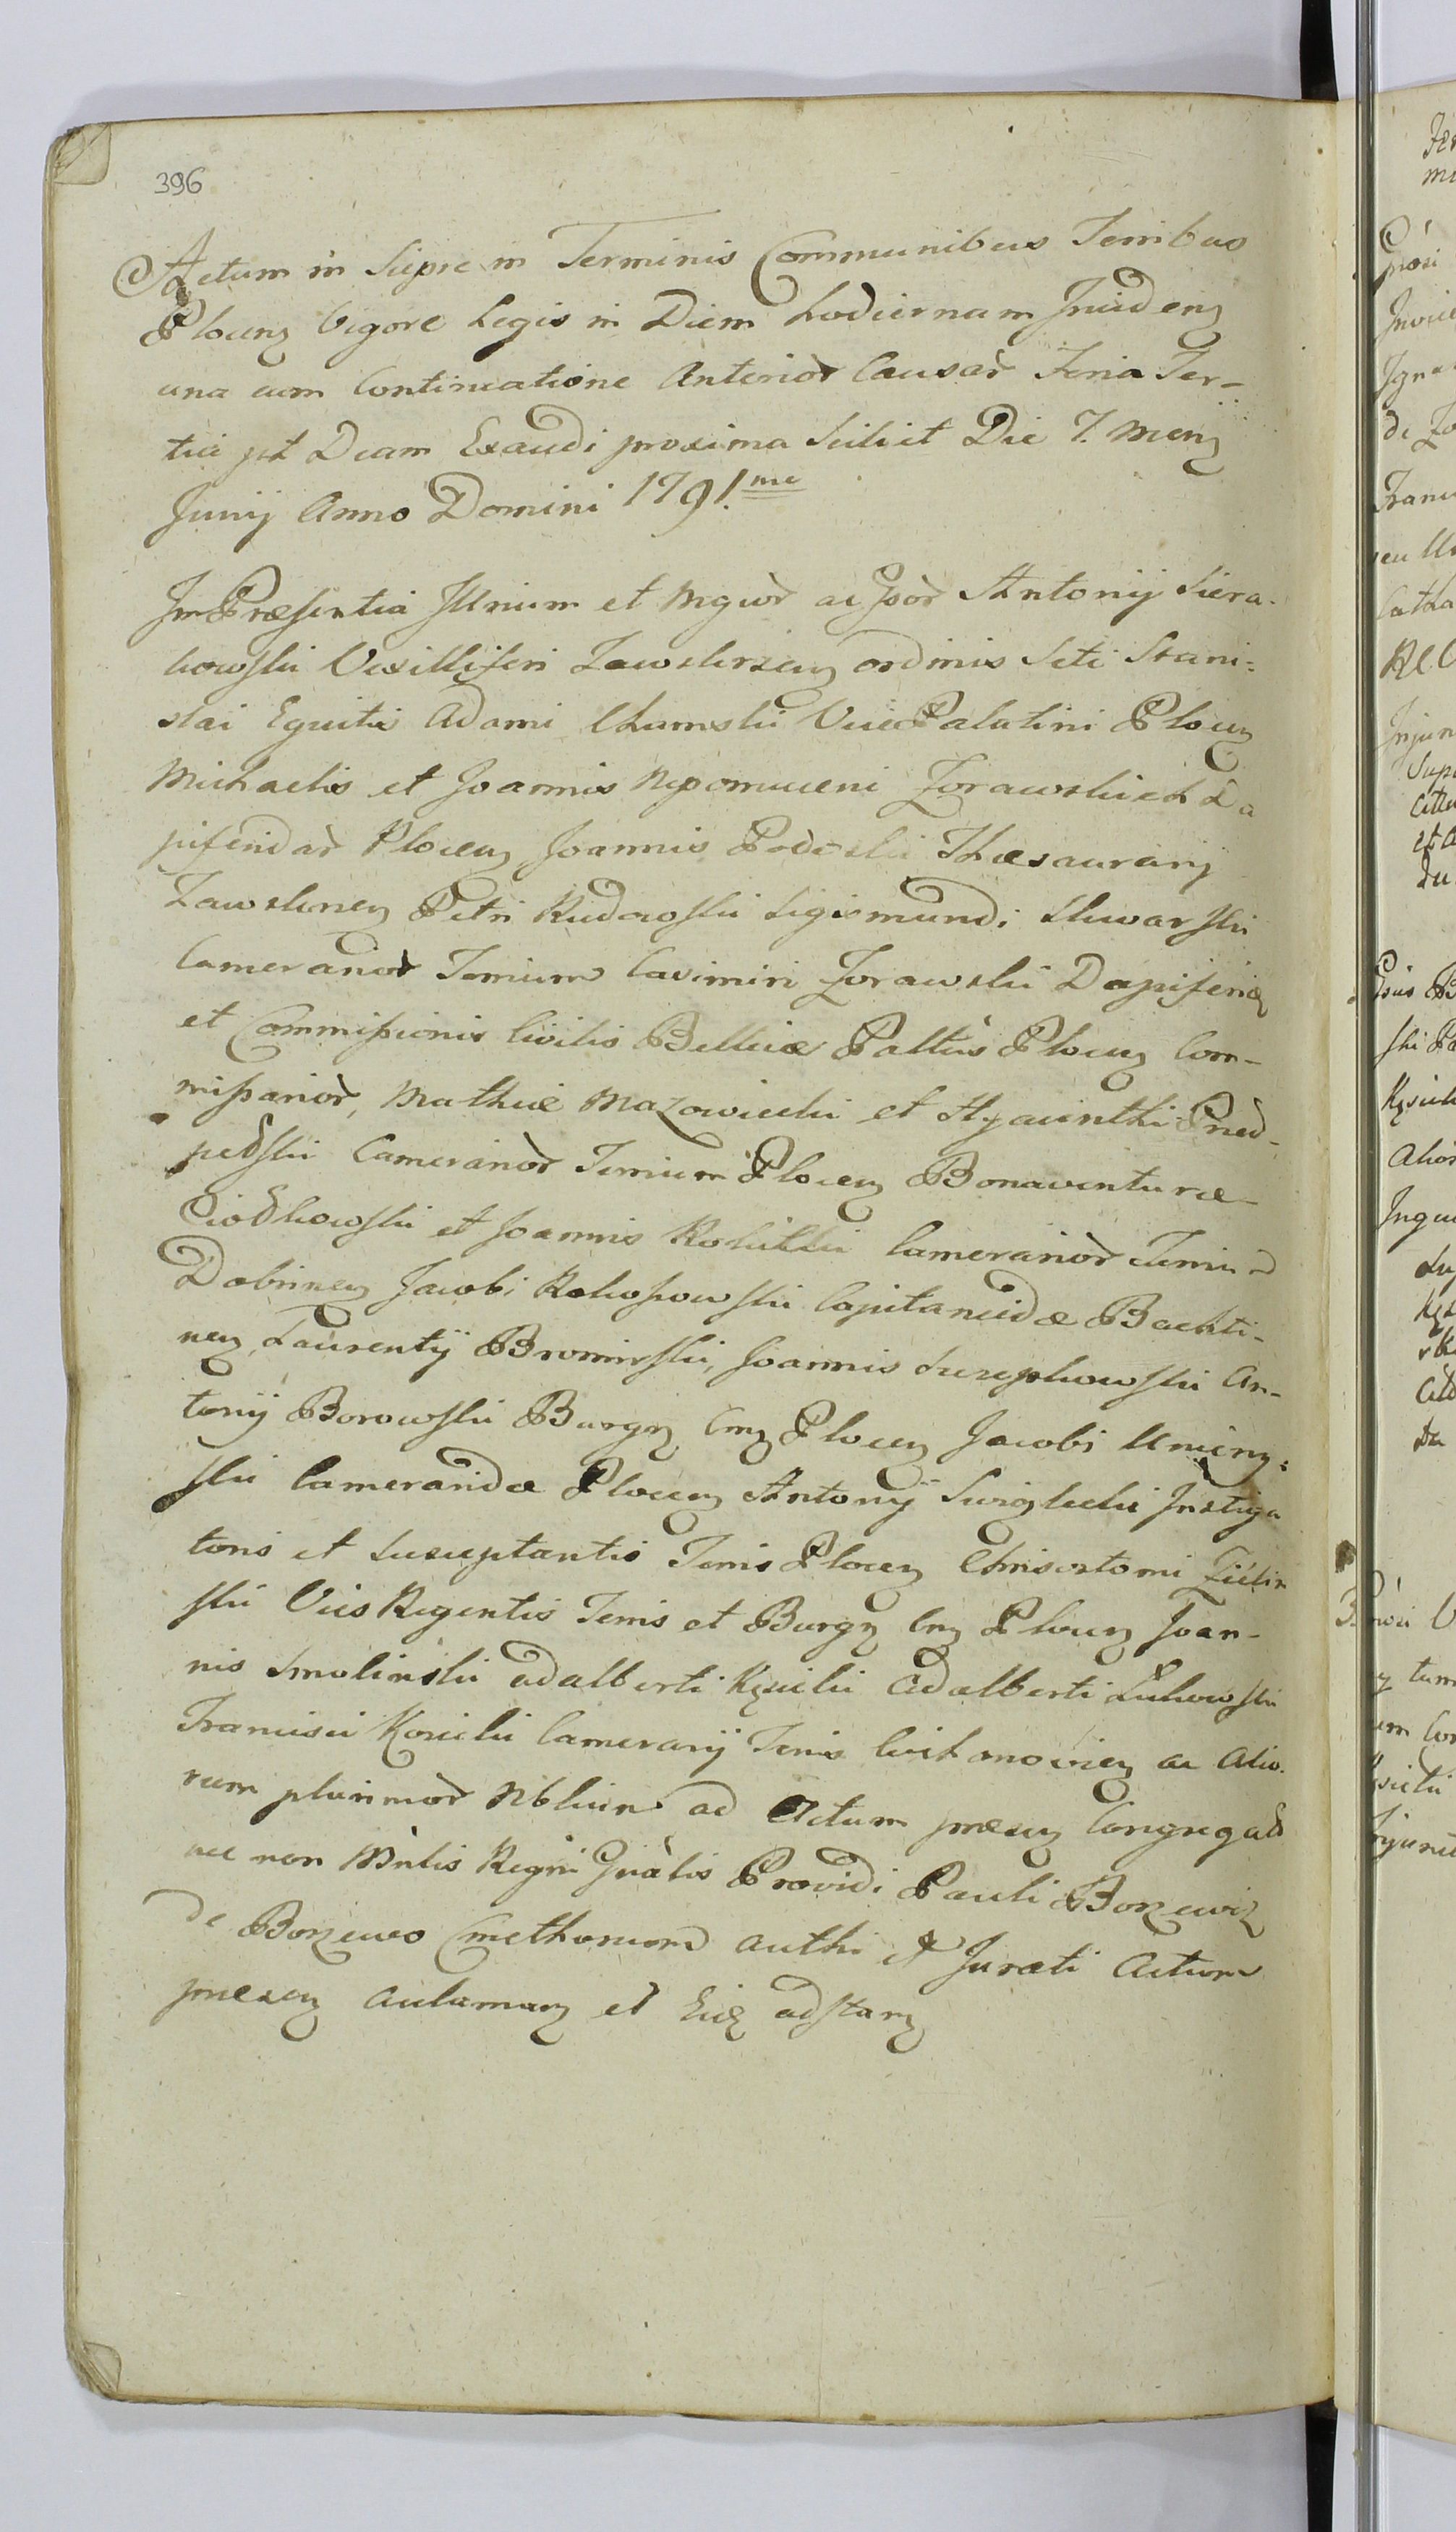 396
Actum in Sieprc in Terminis Communibus Terribus
Plocen Vigore Legis in Diem hodiernam Inciden
una cum Continuatione Anterior Causar Feria Ter-
tia pt Dcam Exaudi proxima Scilicet Die 7. Men
Junij Anno Domini 1791.me
In Præsentia Illrium et Mgcor ac Gsor Antonij Siera-
kowski Vexilliferi Zawskrzen ordinis Scti Stani-
slai Equitis Adami Chamski Vice Palatini Plocen
Michaelis et Joannis Nepomuceni Zorawskich Da
piferidar Plocen Joannis Podoski Thæsaurarij
Zawskrnen Petri Rudowski Sigismundi Skwarski
Camerarior Terrium Casimiri Zorawski Dapiferid
et Commissionis Civilis Bellicæ Palttus Plocen Com-
missarior, Mathiæ Mazowiecki et Hyacinthi Pred-
pełski Camerarior Terrium Plocen Bonaventuræ
Ciołkowski et Joannis Rokitki Camerarior Terrium
Dobrinen Jacobi Rokossowski Capitaneidæ Bachti-
nen, Laurentij Bromirski, Joannis Szczepkowski An-
tonij Borowski Burgn Cn Plocen Jacobi Umieny-
ski Cameraridæ Plocen Antonij Swiglicki Instiga
toris et Susceptantis Terris Plocen Chrisostomi Zielin
ski Vices Regentis Terris et Burgn Cn Plocen Joan-
nis Smolinski Adalberti Kęsicki Adalberti Lukowski
Francisci Kosicki Camerarij Terris ac Alio-
rum plurimor Nblium ad Actum præsen Congregatt
nec non Mntis Regni Gnalis Providi Pauli Borzewiz
de Borzewo Cmethonum authi et Jurati Actum
præsen aclaman et Eid adstan